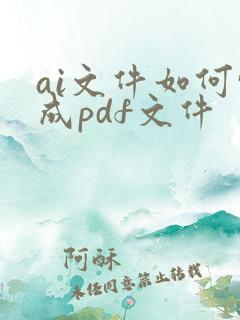 ai文件如何
成pdf文件
阿酥
未经同意禁止转载